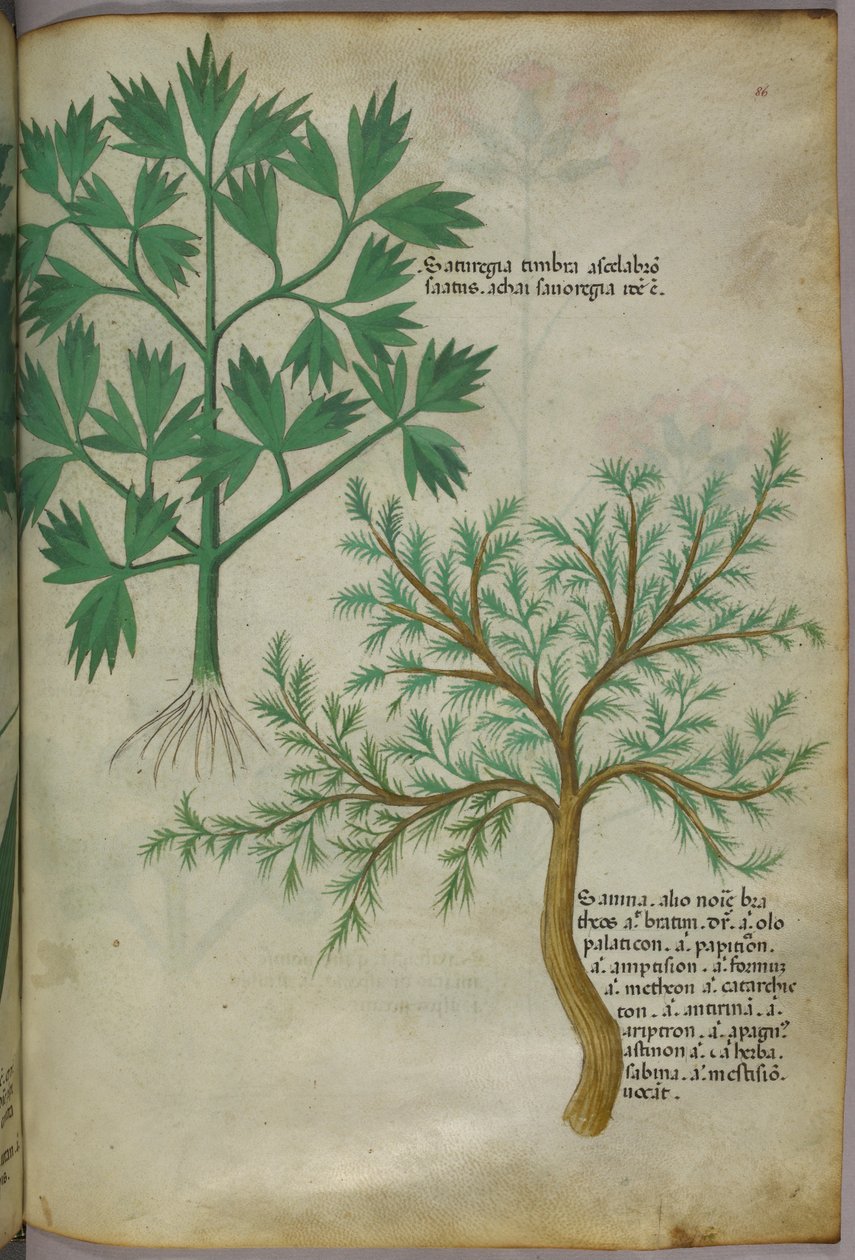 86
Saturegia timbra ascelabrō
saatus. achai sauoregia itē ē.
Sauina. alio noīe bra
theos a͛. bratim. dr̄. a͛. olo
palaticon. a͛. papition.
a͛. amptision. a͛. formuȝ
a͛. metheon a͛. catarchie
ton. a͛. antirinā. a͛.
ariptron. a͛. apagn᷒
astinon a͛. herba.
sabina. a͛. mestisiō.
uocāt.